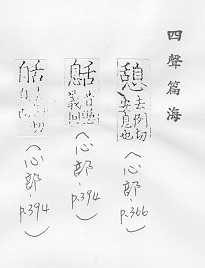 四聲篇海
憩 去例切 安息也
（心部，p.366）
𦧡 音憩 義同
（心部，p.394）
（心部，p.394）